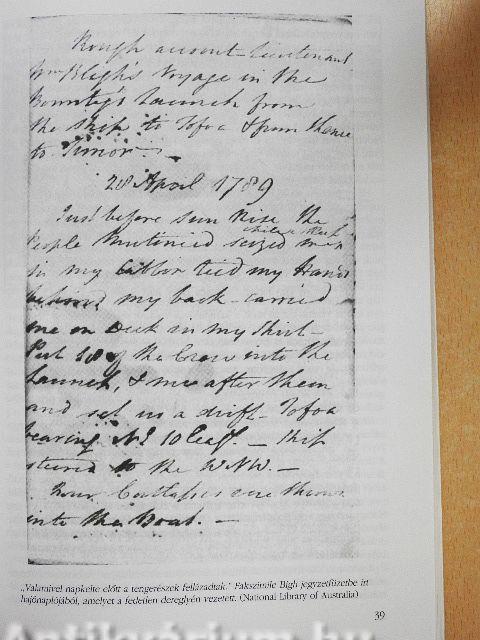 Rough account - Lieutenant
Wm Bligh's Voyage in the
Bounty's Launch from
the ship to Tofoa & from thence
to Timor -
28 April 1789
Just before sun rise the
People Mutinied seized me
while asleep
in my Cabbin tied my Hands
behind my back - carried
me on Deck in my Shirt -
Put 18 of the Crew into the
Launch, & me after them
and set us a drift - Tofoa
bearing NE 10 Leags. - Ship
steered to the WNW. -
Four Cutlasses were thrown
into the Boat. -
„Valamivel napkelte előtt a tengerészek fellázadtak." Fakszimile Bligh jegyzetfüzetbe írt
hajónaplójából, amelyet a fedetlen dereglyén vezetett. (National Library of Australia)
39
Antikvárium.hu